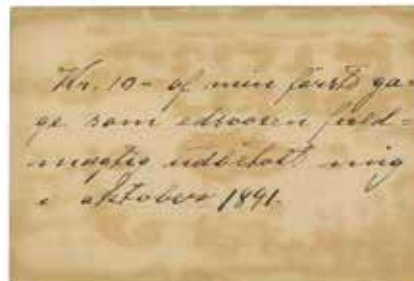 Kr. 10 - af min første ga-
ge som edsvoren fuld=
mægtig udbetalt mig
i oktober 1891.